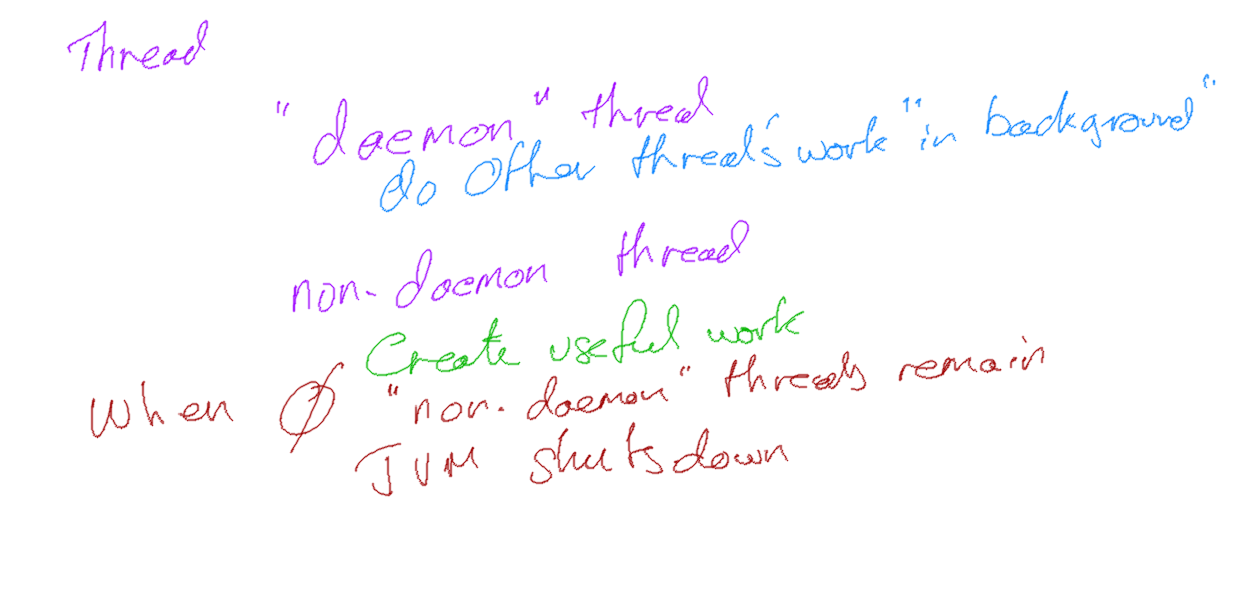 Thread
"daemon" thread
do other thread's work "in background"
non-daemon thread
Create useful work
When Ø "non-daemon" threads remain
JVM shutsdown